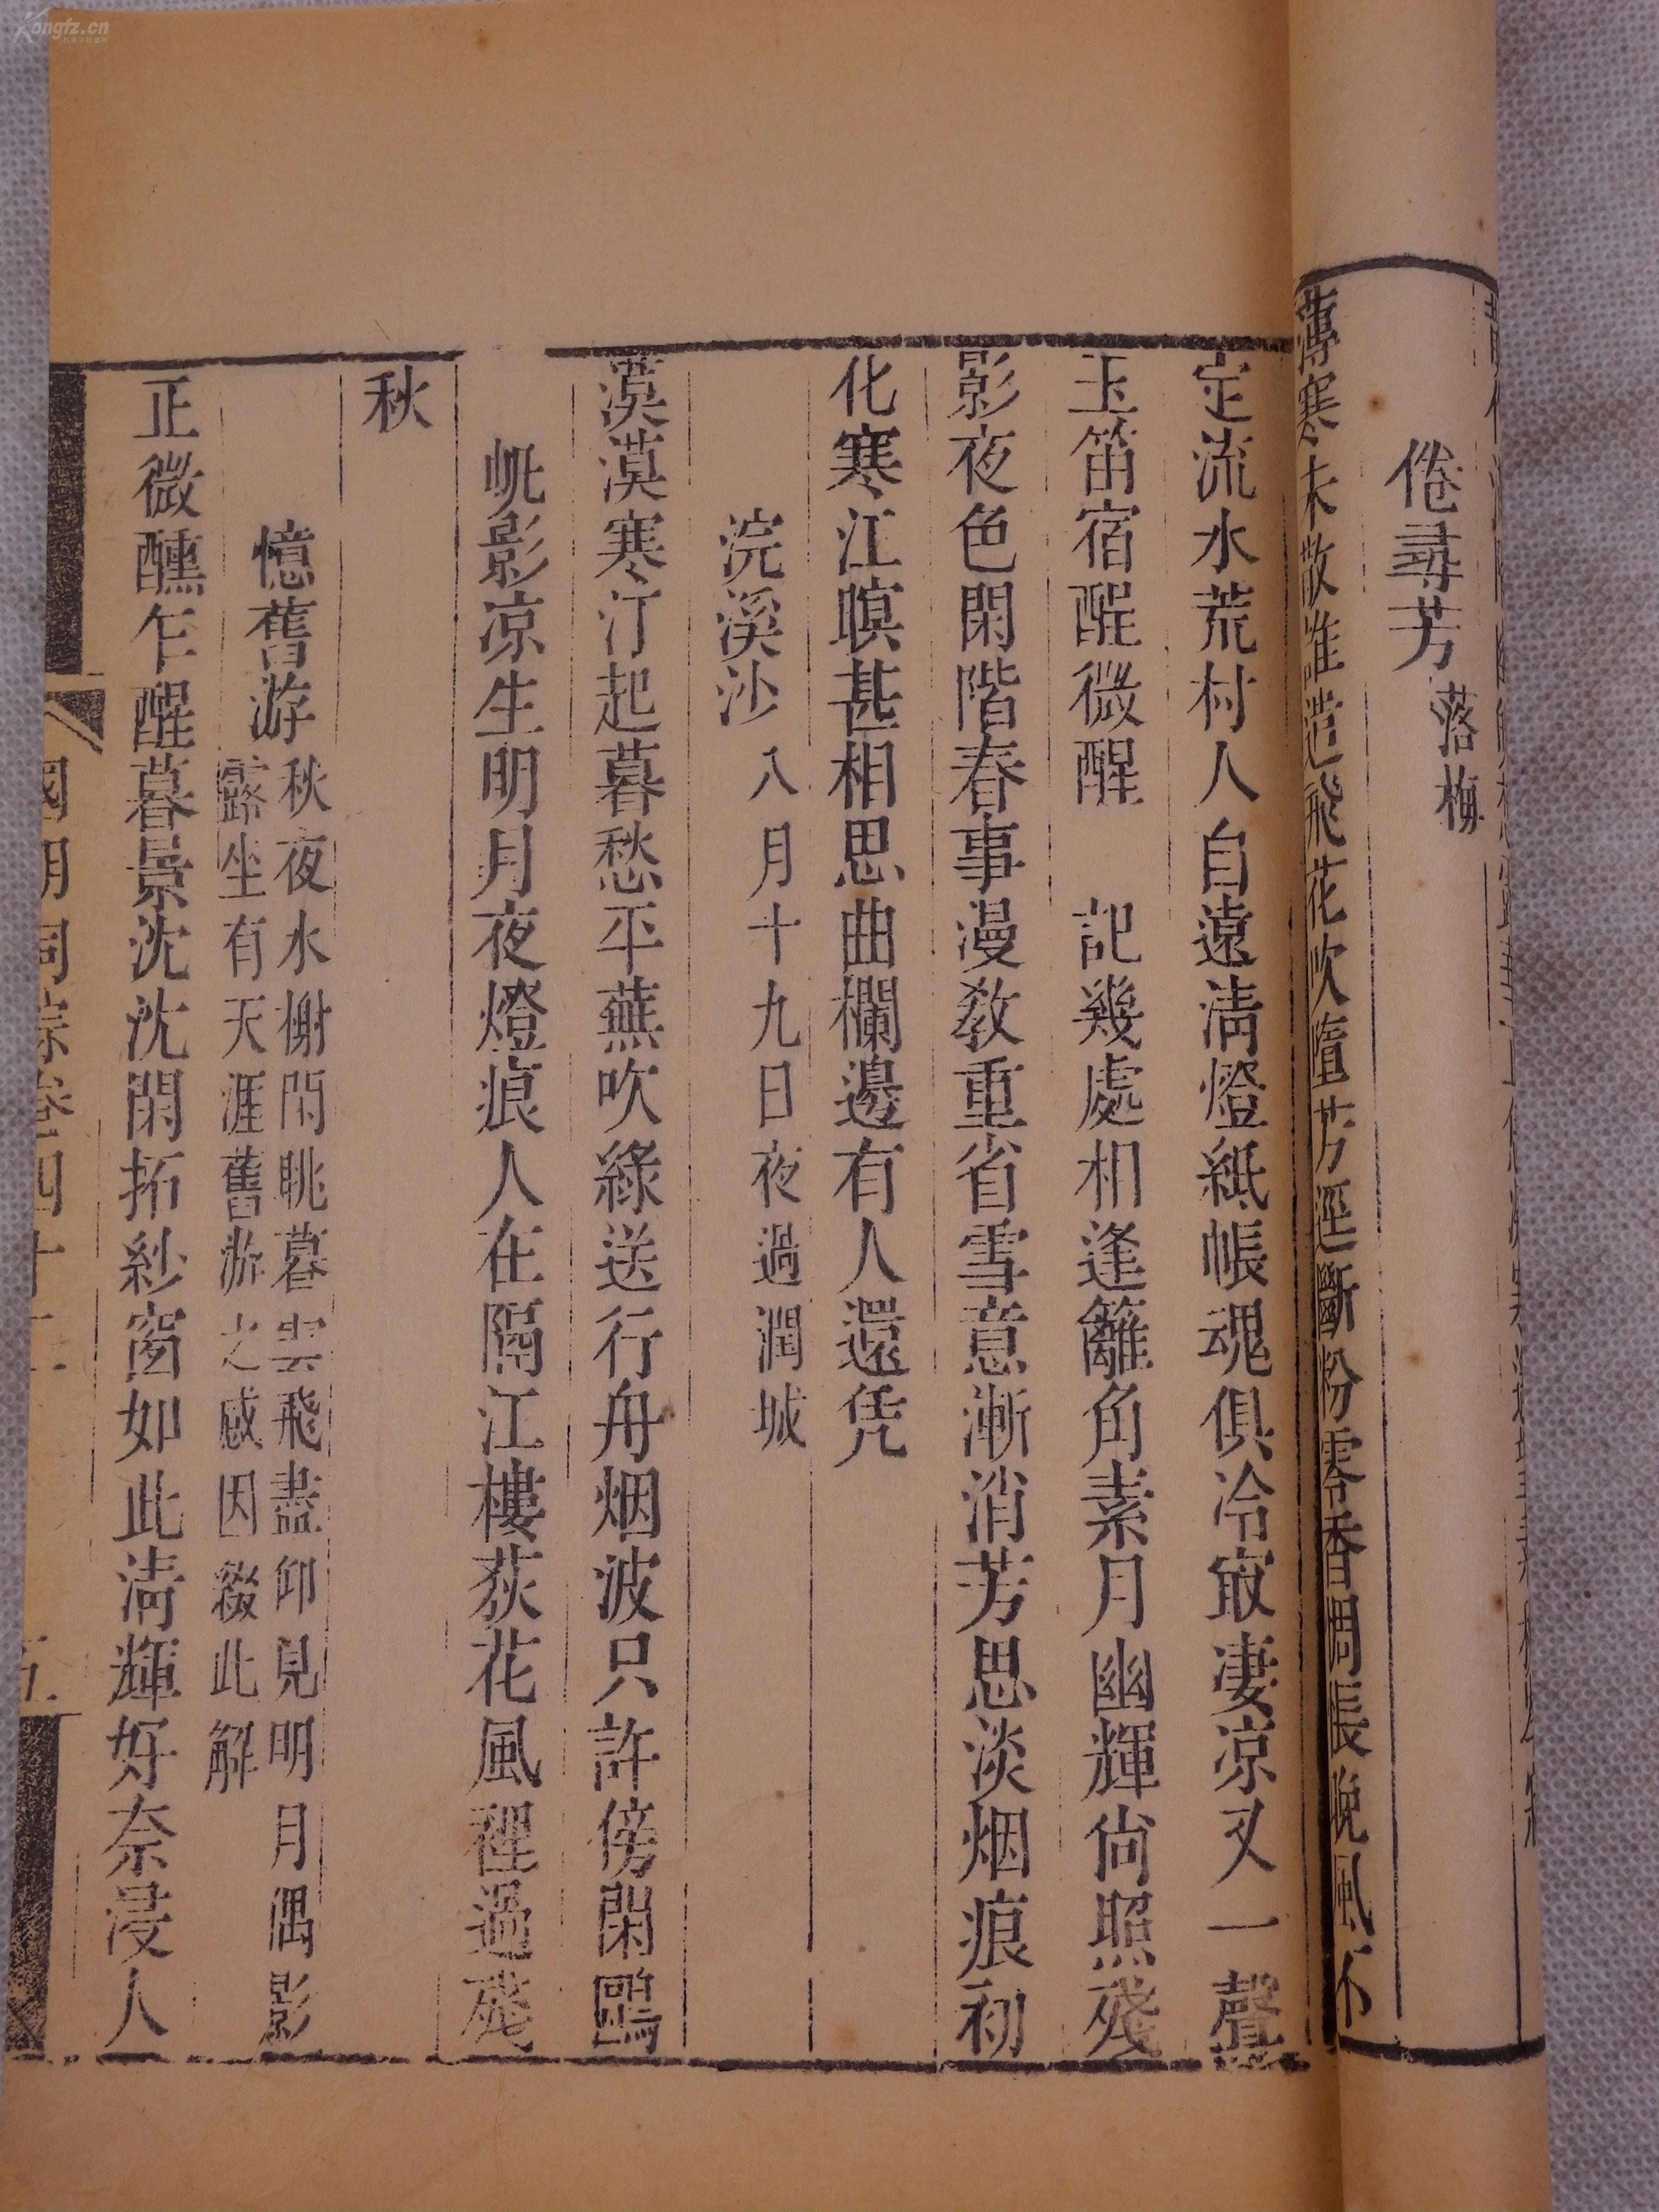 倦尋芳落梅
薄寒未散誰遣飛花吹墮芳逕斷粉零香惆悵晚風不
定流水荒村人自遠淸燈紙帳魂俱冷㝡凄凉又一聲
玉笛宿酲微醒　記幾處相逢籬角素月幽輝尙照殘
影夜色閑階春事漫敎重省雪意漸消芳思淡烟痕初
化寒江暝甚相思曲欄邊有人還凭
浣溪沙八月十九日夜過潤城
漠漠寒汀起暮愁平蕪吹綠送行舟烟波只許傍閑鷗
帆影凉生明月夜燈痕人在隔江樓荻花風裡過殘
秋
憶舊游秋夜水榭閑眺暮雲飛盡仰見明月偶影
露坐有天涯舊游之感因綴此解
正微醺乍醒暮景沈沈閑拓紗窗如此淸輝好奈浸人
國朝詞綜卷四十二
五
Kongfz.cn